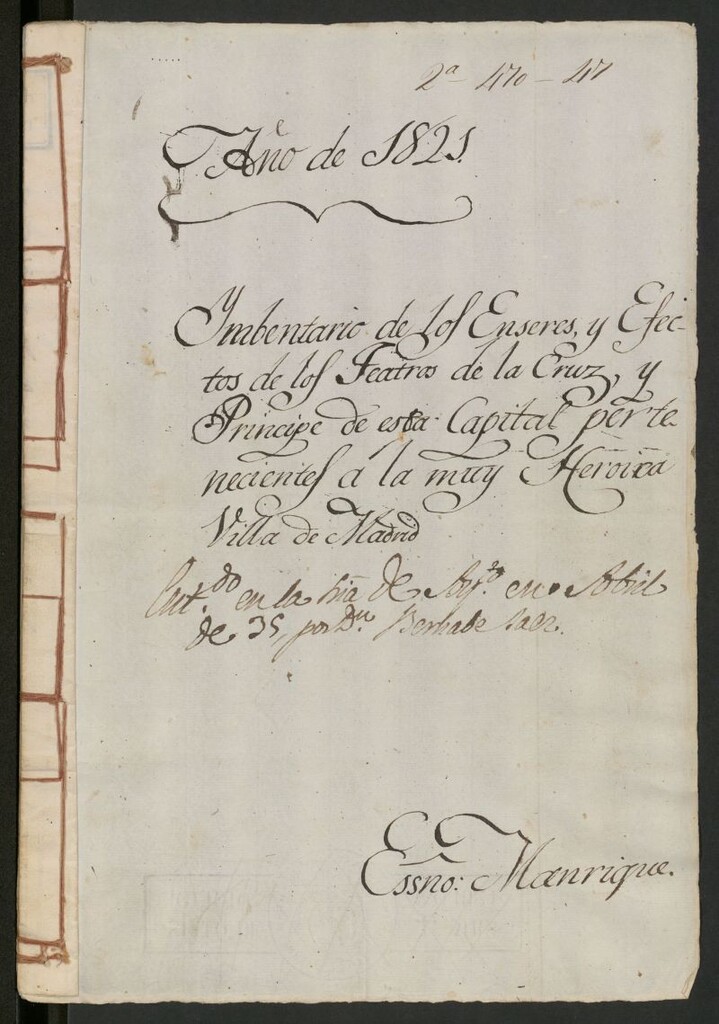 2ª 470-47
Año de 1821.
Ymbentario de los Enseres, y Efec-
tos de los Teatros de la Cruz, y
Principe de esta Capital perte-
necientes à la muy Heroica
Villa de Madrid
Ent.do en la Sria de Ay.to en Abril
de 35, por Dn. Bernabe Saez.
Essno: Manrique.